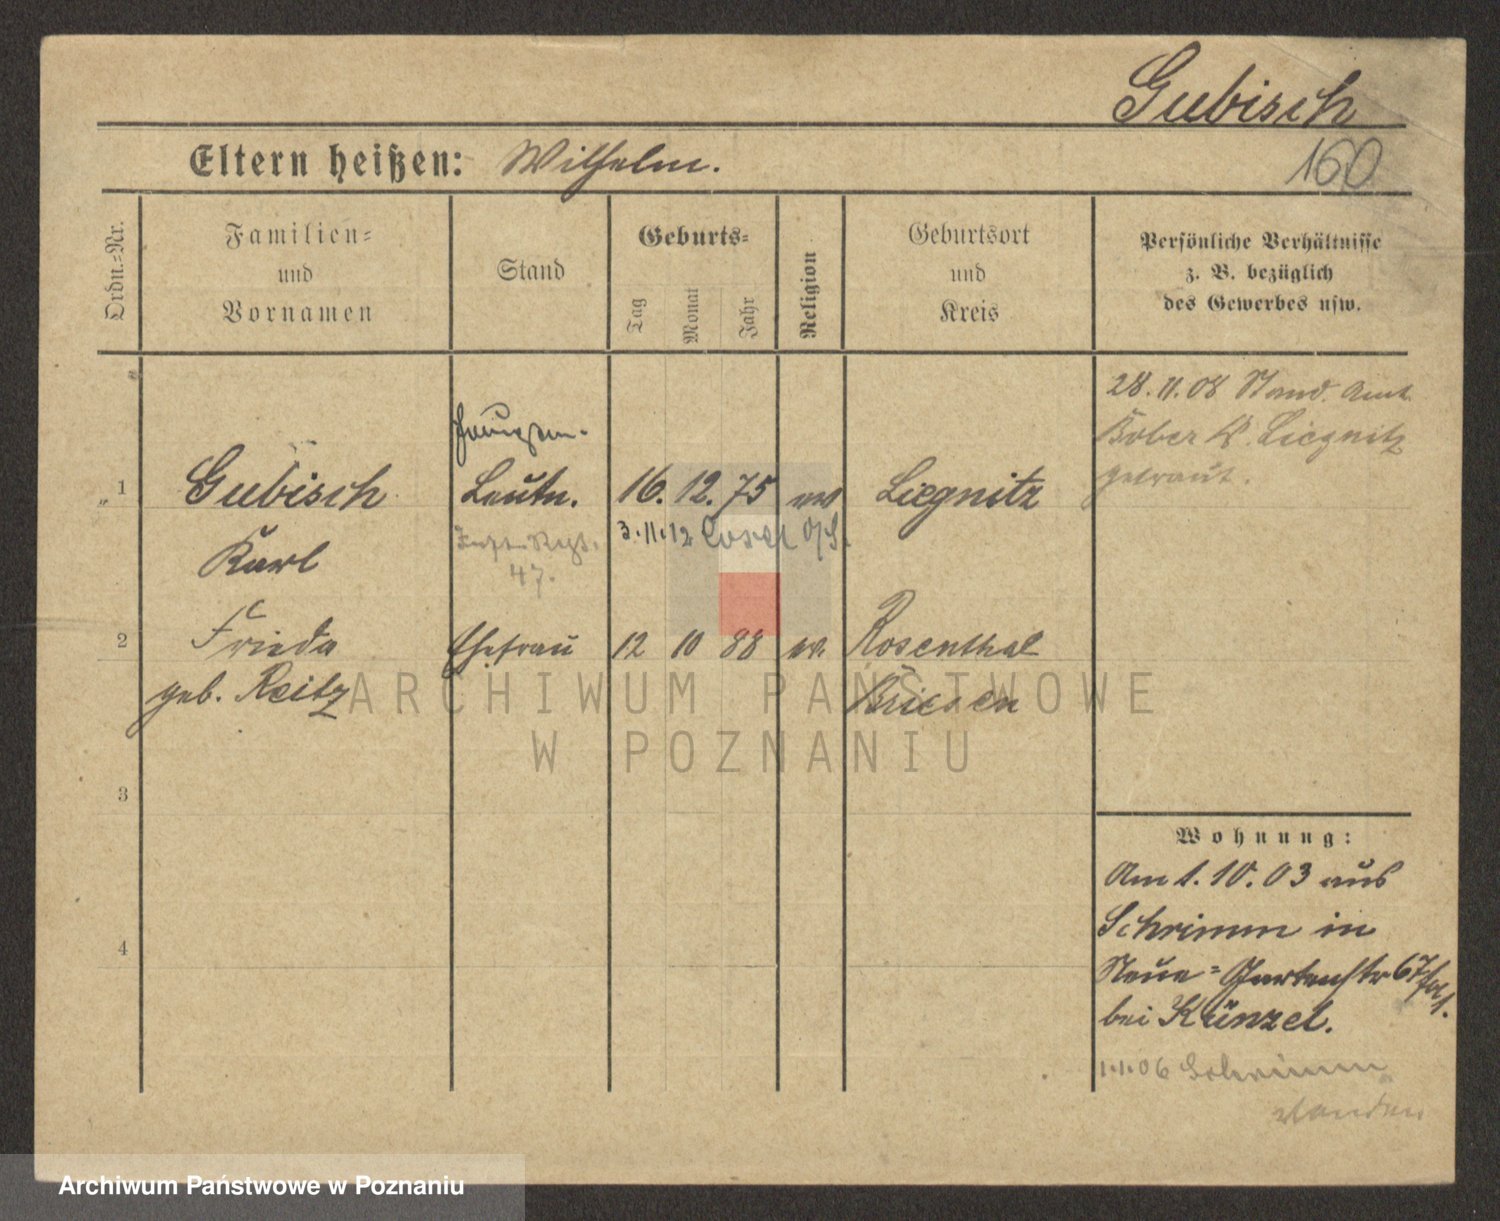 Gubisch
160
Eltern heißen: Wilhelm.
Ordn.-Nr.
Familien-
und
Vornamen
Stand
Geburts-
Tag
Monat
Jahr
Religion
Geburtsort
und
Kreis
Persönliche Verhältnisse
z. B. bezüglich
des Gewerbes usw.
28.11.08 Stand. Amt
Liegnitz
getraut.
1 Gubisch Leutn. 16. 12. 75 ev Liegnitz
3.11.12 Cosel O/S.
Karl
47.
2 Frieda Ehefrau 12 10 88 ev. Rosenthal
geb. Reitz Briesen
ARCHIWUM PAŃSTWOWE
W POZNANIU
3
4
Wohnung:
Am 1.10.03 aus
Schrimm in
Neue-Gartenstr 67
bei Künzel.
1.1.06 Schrimm
Archiwum Państwowe w Poznaniu